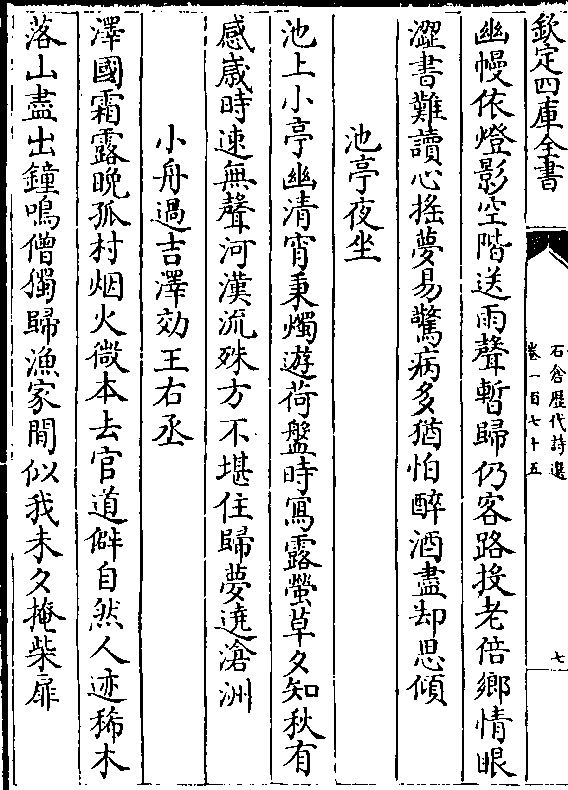 欽定四庫全書
石倉歷代詩選
卷一百七十五
七
幽幔依燈影空階送雨聲暫歸仍客路投老倍鄉情眼
澀書難讀心搖夢易驚病多猶怕醉酒盡却思傾
池亭夜坐
池上小亭幽清宵秉燭遊荷盤時寫露螢草夕知秋有
感歲時速無聲河漢流殊方不堪住歸夢遶滄洲
小舟過吉澤効王右丞
澤國霜露晚孤村烟火微本去官道僻自然人迹稀木
落山盡出鐘鳴僧獨歸漁家間似我未夕掩柴扉